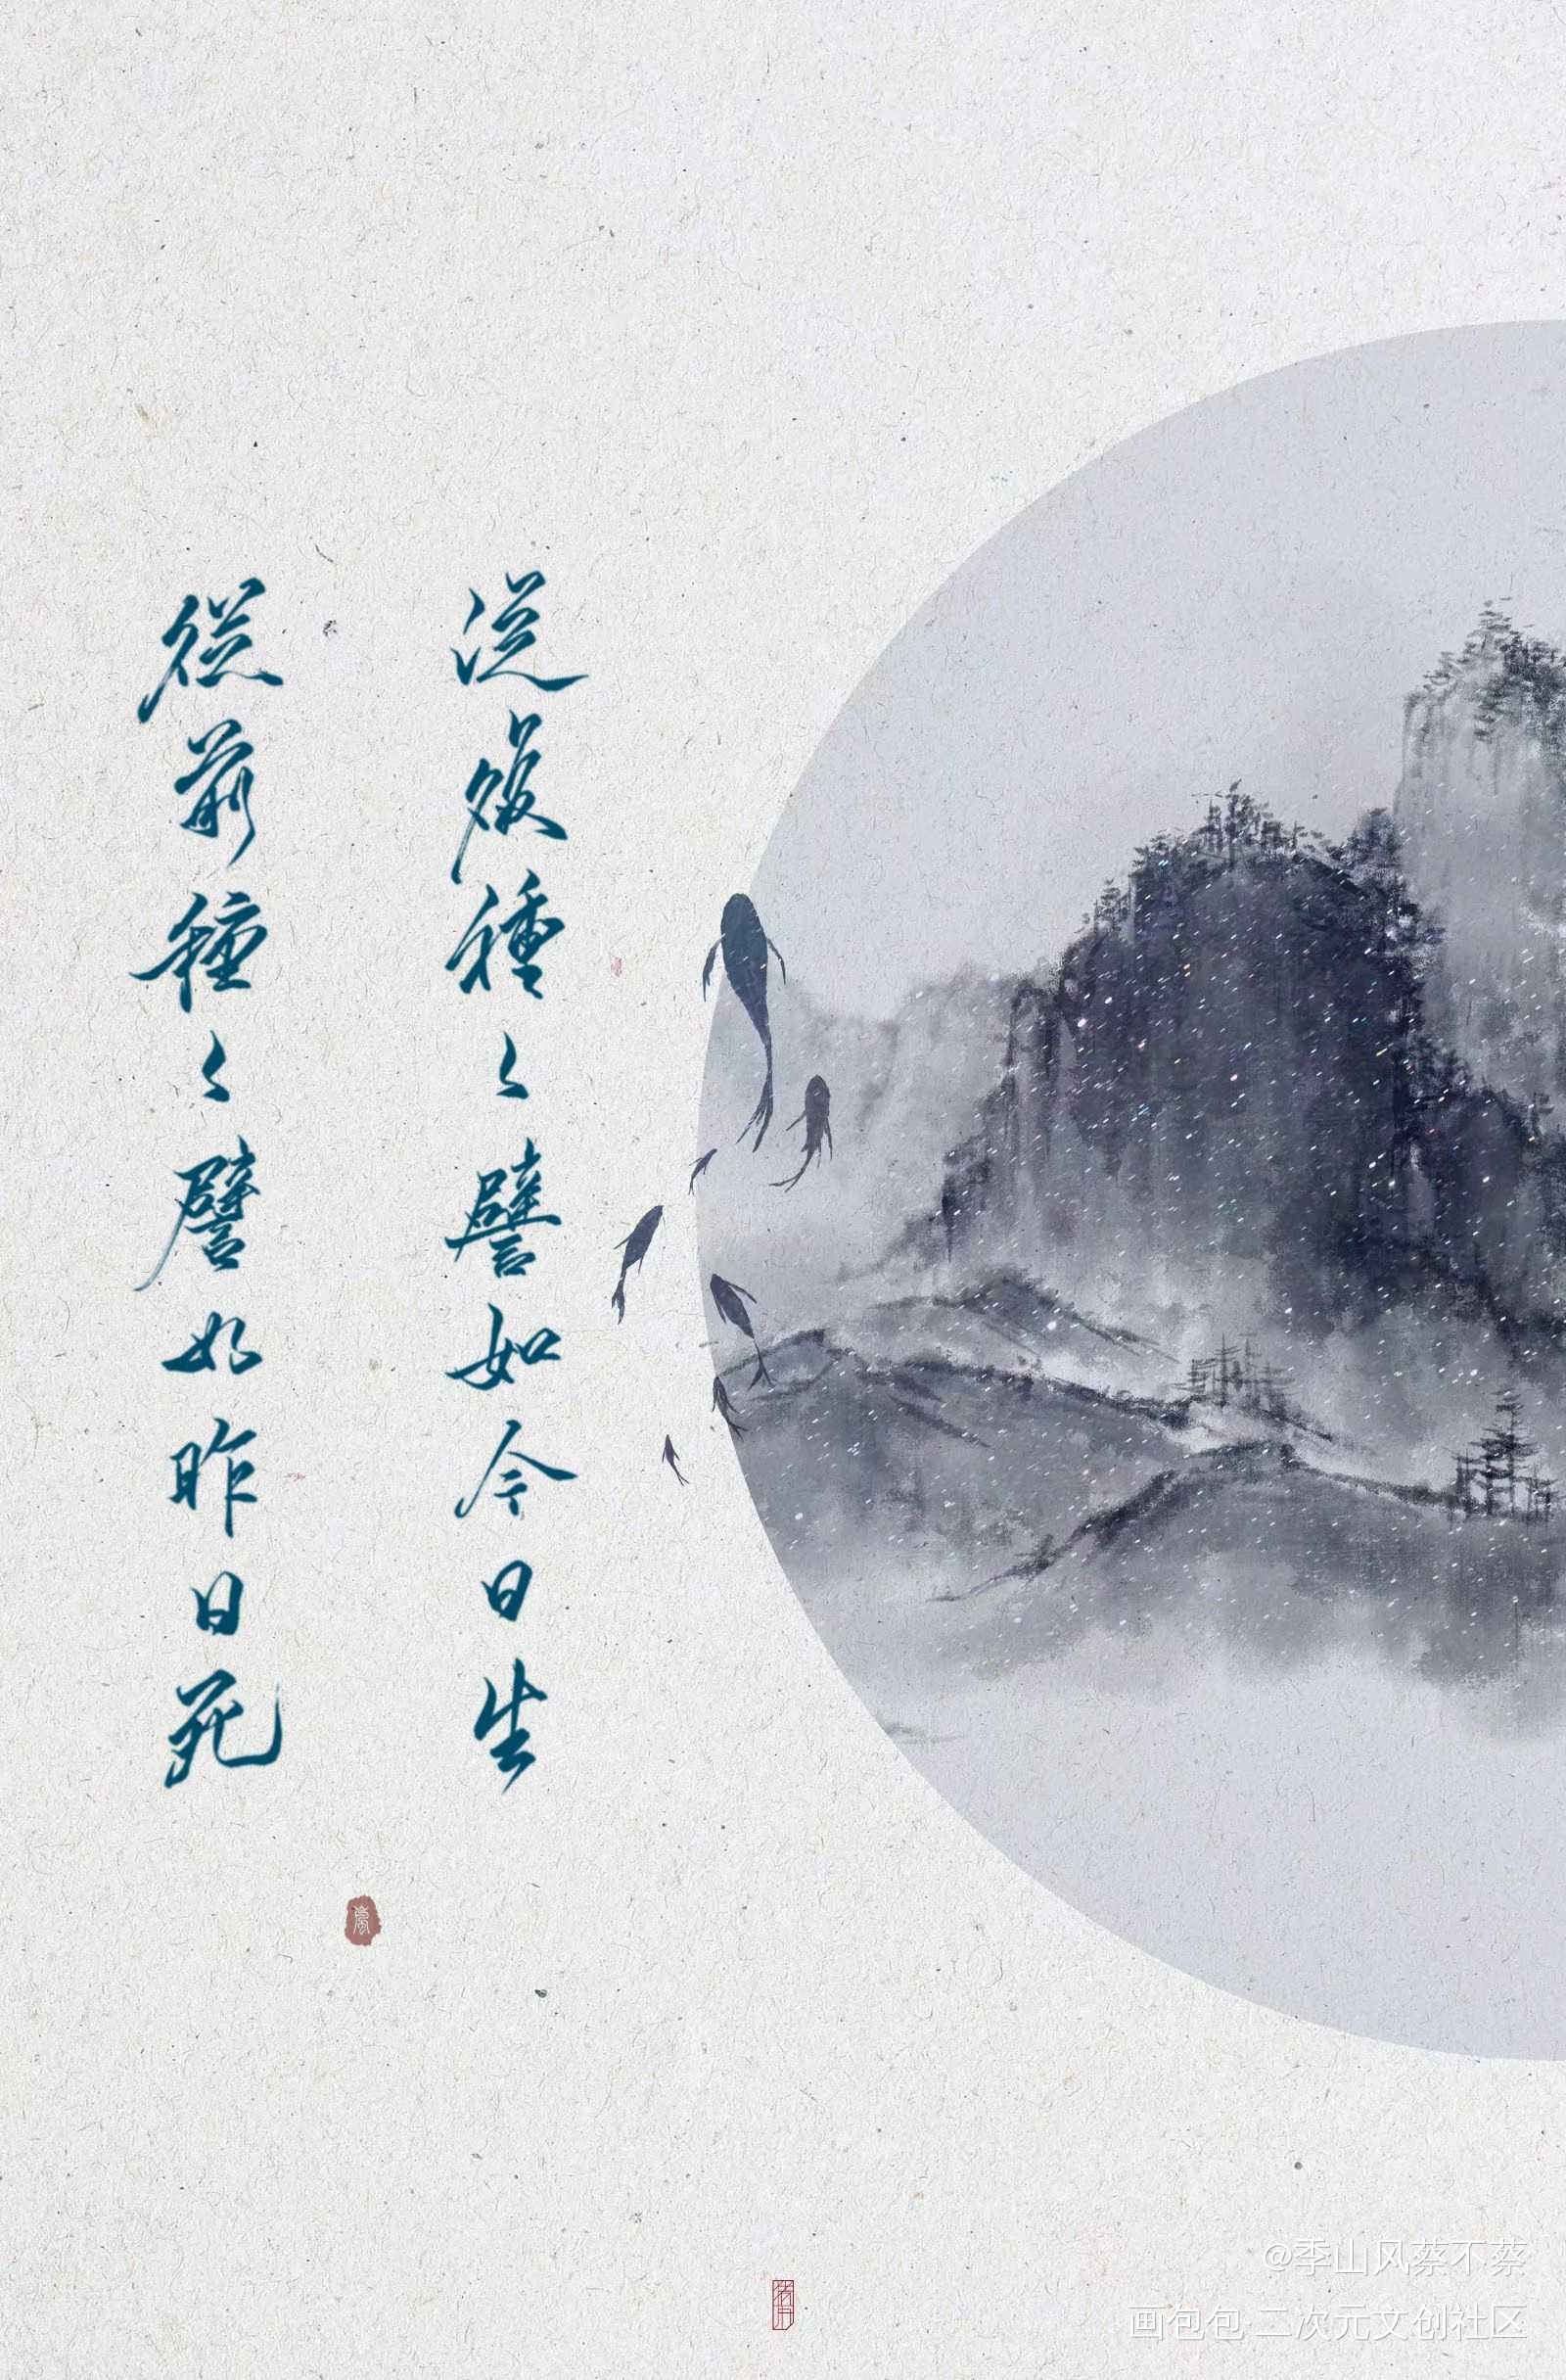 從前種々譬如昨日死
從後種々譬如今日生
@季山风蔡不蔡
画包包·二次元文创社区